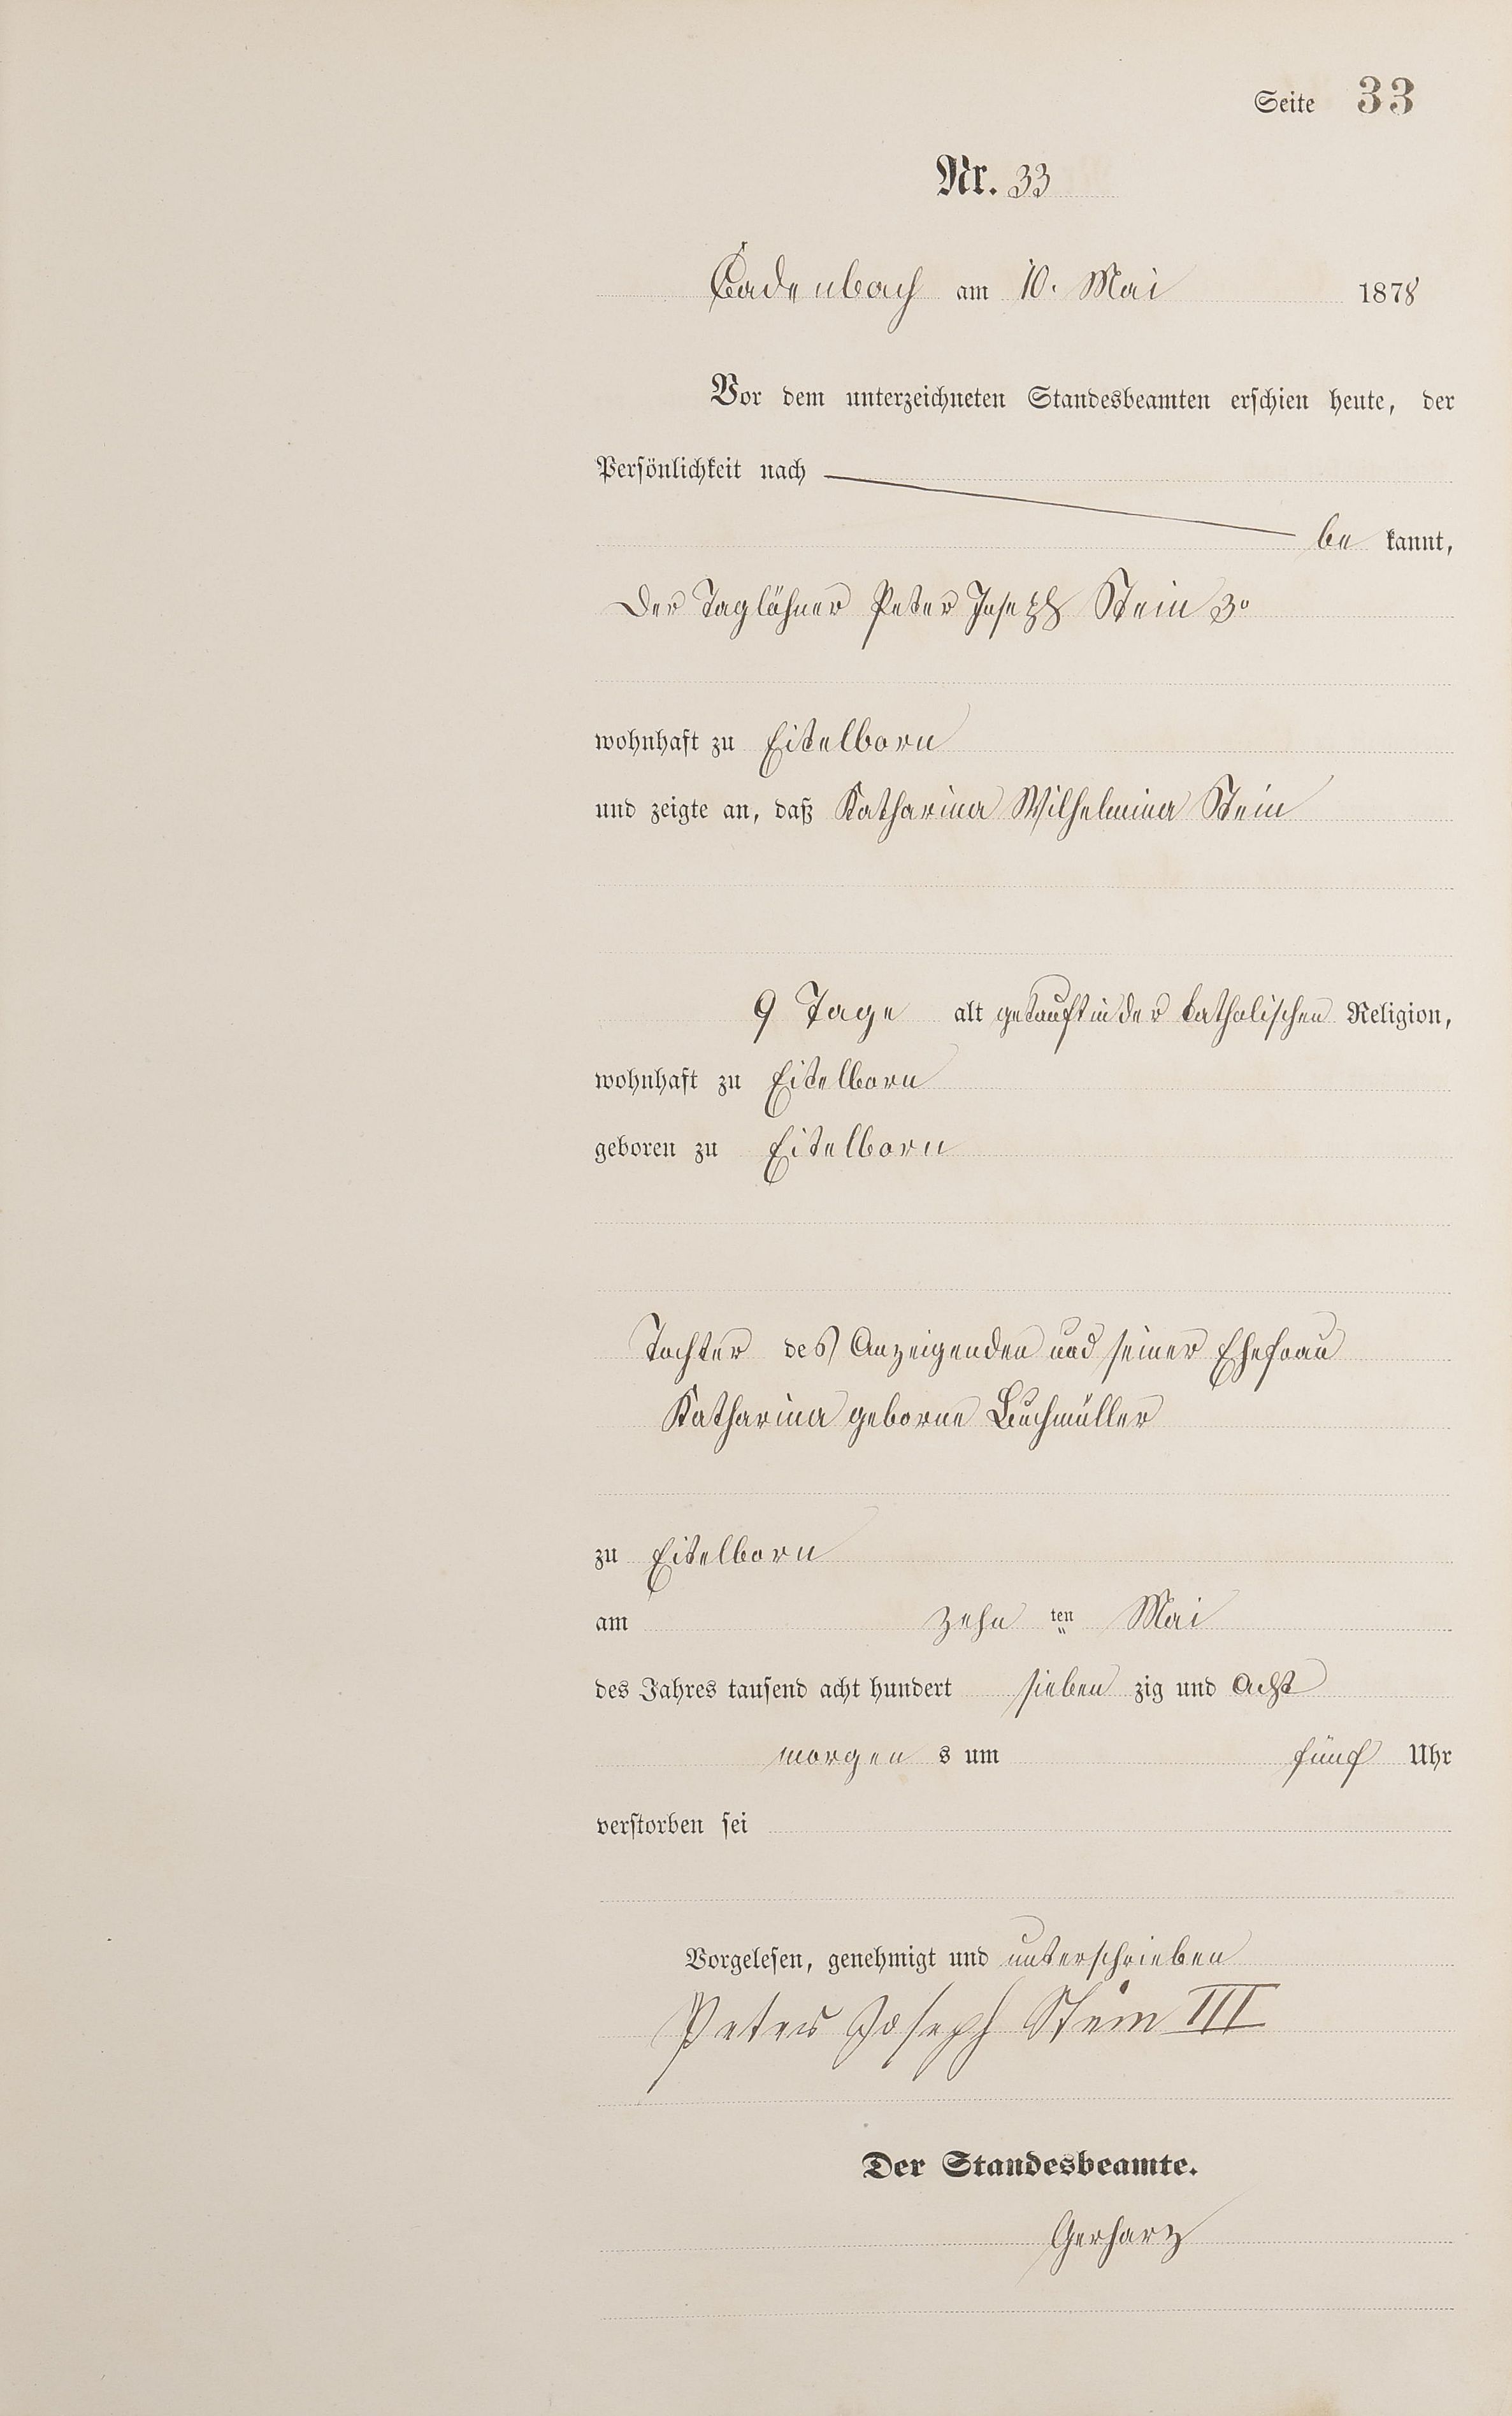 Seite 33
Nr. 33
Cadenbach am 10. Mai 1878
Vor dem unterzeichneten Standesbeamten erschien heute, der
Persönlichkeit nach
be kannt,
Der Taglöhner Peter Joseph Stein 3º
wohnhaft zu Eitelborn
und zeigte an, daß Katharina Wilhelmina Stein
9 Tage alt getauft in der katholischen Religion,
wohnhaft zu Eitelborn
geboren zu Eitelborn
Tochter des Anzeigenden und seiner Ehefrau
Katharina geborne Buchmüller
zu Eitelborn
am zehn ten Mai
des Jahres tausend acht hundert sieben zig und Acht
morgen s um fünf Uhr
verstorben sei
Vorgelesen, genehmigt und unterschrieben
Peter Joseph Stein III
Der Standesbeamte.
Gerharz